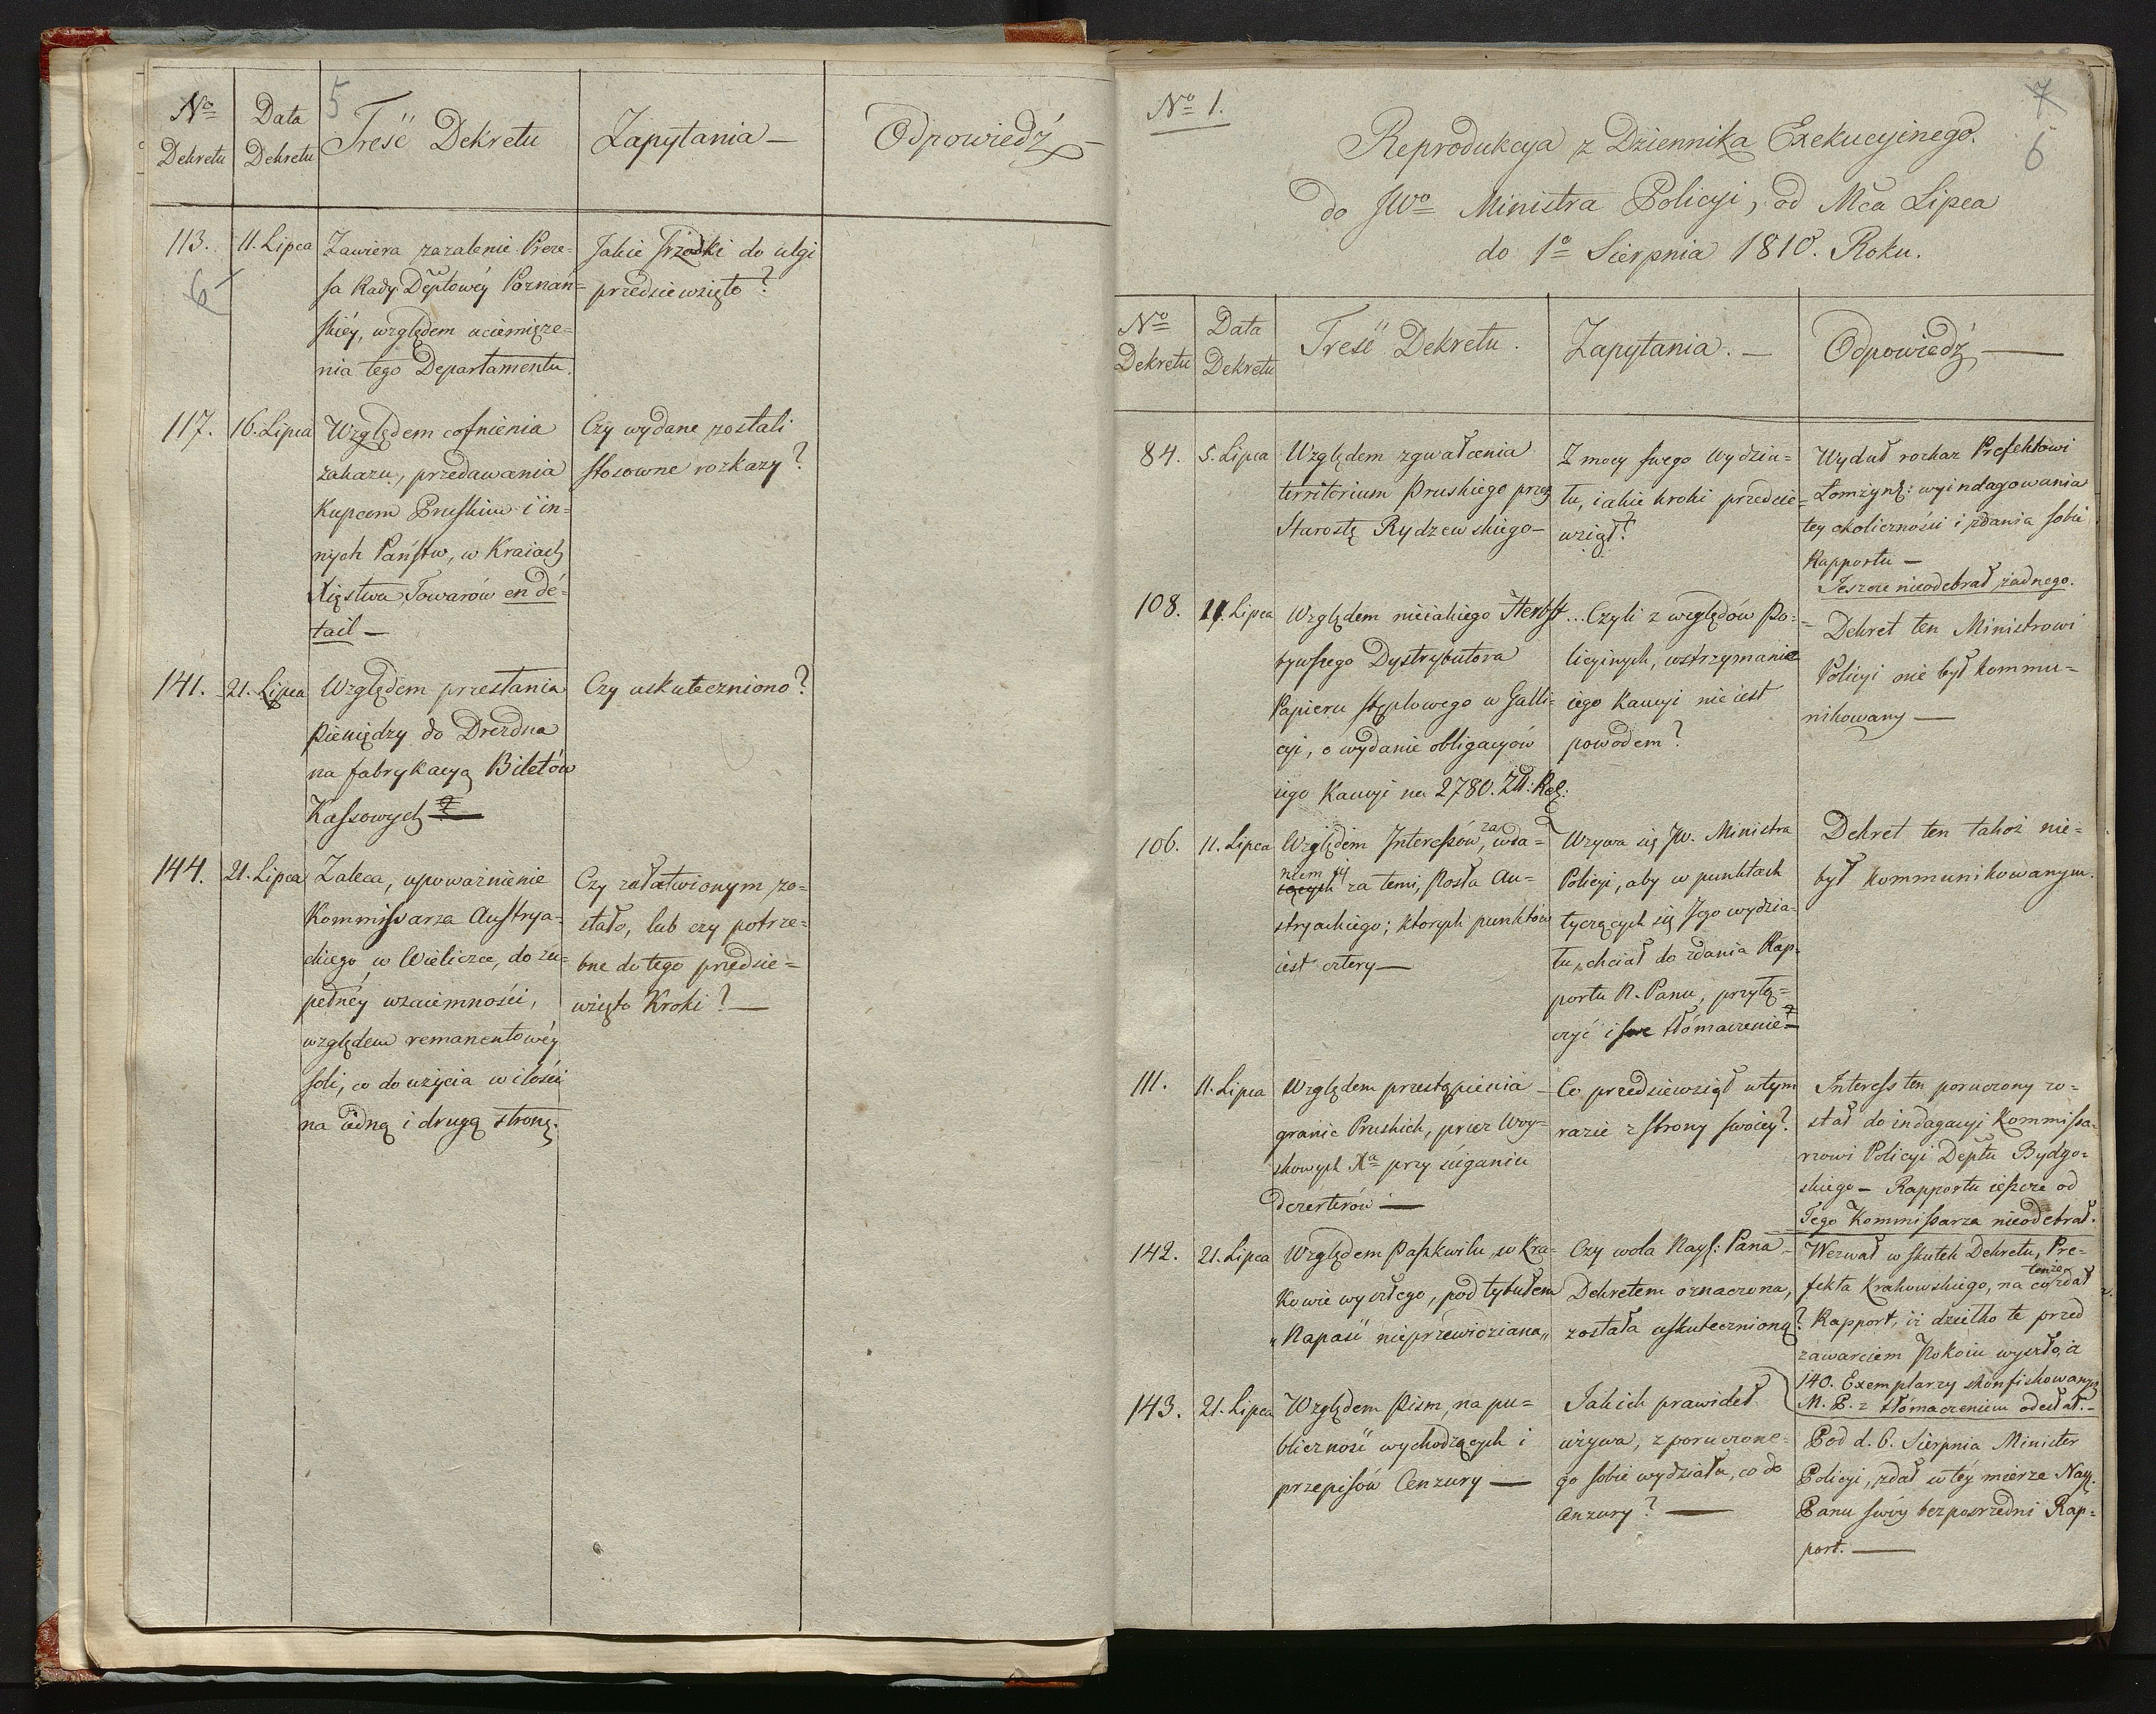 5
Nº Dekretu
Data Dekretu
Treść Dekretu
Zapytania —
Odpowiedź —
113.
6
11. Lipca
Zawiera zazalenie Preze=
sa Rady Deptowéy Poznań=
skiéy, względem uciemięże=
nia tego Departamentu.
Jakie srzodki do ulgi
przedsiewzięto?
117.
16. Lipca
Względem cofnienia
zakazu, przedawania
Kupcom Pruskim i in=
nych Państw, w Kraiach
Xięstwa Towarów en dé=
tail —
Czy wydane zostali
stosowne rozkazy?
141.
21. Lipca
Względem przesłania
Pieniędzy do Drezdna
na fabrykacyą Biletów
Kassowych
Czy uskuteczniono?
144.
21. Lipca
Zaleca, upoważnienie
Kommissarza Austrya=
ckiego w Wieliczce, do zu=
pełnéy wzaiemności,
względem remanentowéy
soli, co do użycia w ilości
na iedną i drugą stronę.
Czy załatwionym zo=
stało, lub czy potrze=
bne do tego przedsie=
wzięto Kroki? —
Nº 1.
7
6
Reprodukcya z Dziennika Exekucyinego.
do JWº Ministra Policyi, od Mca Lipca
do 1º Sierpnia 1810. Roku.
Nº Dekretu
Data Dekretu
Treść Dekretu.
Zapytania. —
Odpowiedź —
84.
5. Lipca
Względem zgwałcenia
territorium Pruskiego przez
Starostę Rydzewskiego —
Z mocy swego Wydzia=
łu, iakie kroki przedsie=
wziął?
Wydał rozkaz Prefektowi
Łomżyńs: wyindagowania
tey okoliczności i zdania sobie
Rapportu —
Jeszcze nieodebrał żadnego.
108.
11. Lipca
Względem nieiakiego Herbst
bywszego Dystrybutora
Papieru stęplowego w Galli=
cyi, o wydanie obligacyów
iego Kaucyi na 2780. Zł: Reń:
... Czyli z względów Po=
licyinych, wstrzymanie
iego Kaucyi nie iest
powodem?
Dekret ten Ministrowi
Policyi nie był kommu=
nikowany —
106.
11. Lipca
Względem Interessów, zawda=
niem się za temi, Posła Au=
stryackiego; ktorych punktów
iest cztery —
Wzywa się JW. Ministra
Policyi, aby w punktach
tyczących się Jego wydzia=
łu, chciał do zdania Rap=
portu N. Panu, przyłą=
czyć i swe tłómaczenie
Dekret ten takoż nie=
był kommunikowanym.
111.
11. Lipca
Względem przestąpienia
granic Pruskich, przez Woy=
skowych Xa przy ściganiu
dezerterów —
Co przedsiewziął w tym
razie z strony swoiey?
Interess ten poruczony zo=
stał do indagacyi Kommissa=
rzowi Policyi Deptu Bydgo=
skiego — Rapportu ieszcze od
Tego Kommissarza nieodebrał.
142.
21. Lipca
Względem Paszkwilu w Kra=
kowie wyszłego, pod tytułem
„Napaść nieprzewidziana„
Czy wola Nayj: Pana
Dekretem oznaczona,
została uskutecznioną?
Wezwał w skutek Dekretu, Pre=
fekta Krakowskiego, na co tenże zdał
Rapport, iż dziełko te przed
zawarciem Pokoiu wyszło, a
140. Exemplarzy skonfiskowanych
M. P. z tłómaczeniem odesłał. —
143.
21. Lipca
Względem Pism, na pu=
bliczność wychodzących i
przepisów Cenzury —
Jakich prawideł
używa, z poruczone=
go sobie wydziału, co do
Cenzury? —
Pod d. 6. Sierpnia Minister
Policyi, zdał w téy mierze Nayj.
Panu swóy bezpośrzedni Rap=
port. —